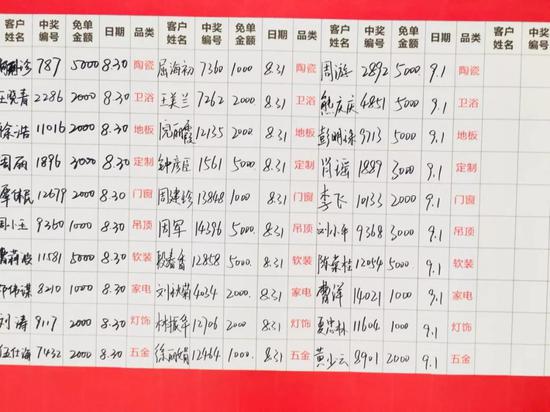 客户姓名 中奖编号 免单金额 日期 品类 客户姓名 中奖编号 免单金额 日期 品类 客户姓名 中奖编号 免单金额 日期 品类 客户姓名 中奖编号
787 5000 8.30 陶瓷 屈海初 7360 1000 8.31 陶瓷 周游 2892 5000 9.1 陶瓷
王晓青 2286 2000 8.30 卫浴 王美兰 7262 2000 8.31 卫浴 熊庆庆 4851 5000 9.1 卫浴
徐浩 11016 2000 8.30 地板 丽霞 12135 2000 8.31 地板 彭明 9713 5000 9.1 地板
周 1896 3000 8.30 定制 钟彦臣 1561 5000 8.31 定制 肖瑶 1889 3000 9.1 定制
12679 2000 8.30 门窗 周建珍 13848 1000 8.31 门窗 李飞 10133 2000 9.1 门窗
周小玉 9360 1000 8.30 吊顶 周军 14396 5000 8.31 吊顶 刘小年 9368 3000 9.1 吊顶
11581 5000 8.30 软装 段春香 12858 5000 8.31 软装 陈桂 12054 5000 9.1 软装
8210 1000 8.30 家电 刘秋菊 4034 2000 8.31 家电 曹洋 14021 1000 9.1 家电
刘涛 9117 2000 8.30 灯饰 林振军 12706 2000 8.31 灯饰 夏忠林 11604 1000 9.1 灯饰
伍仕海 7432 2000 8.30 五金 徐丽娟 12464 1000 8.31 五金 黄少云 8901 2000 9.1 五金